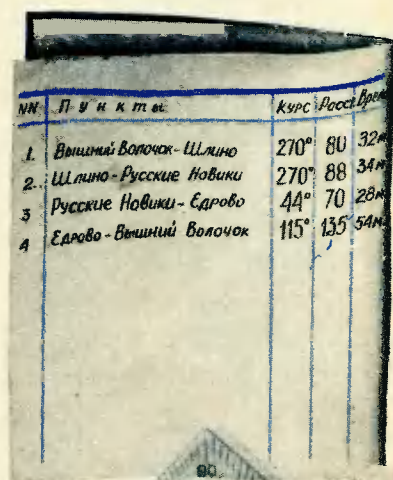 NN Пункты Курс Расст Врем
1. Вышний Волочок-Шлино 270° 80 32м
2. Шлино-Русские Новики 270° 88 34м
3 Русские Новики-Едрово 44° 70 28м
4 Едрово-Вышний Волочок 115° 135 54м
90